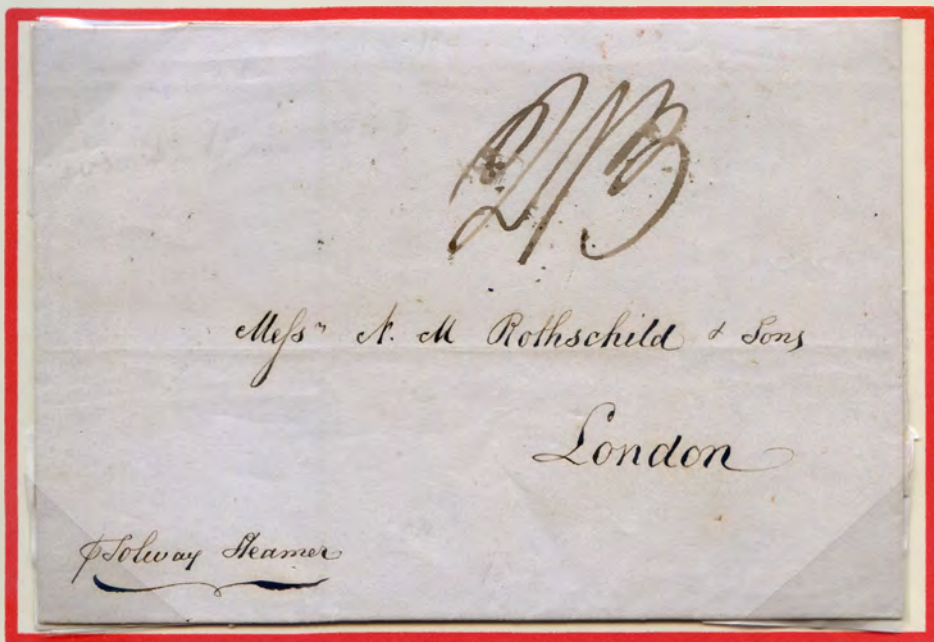 2/3
Messrs N. M Rothschild & Sons
London
p Solway Steamer